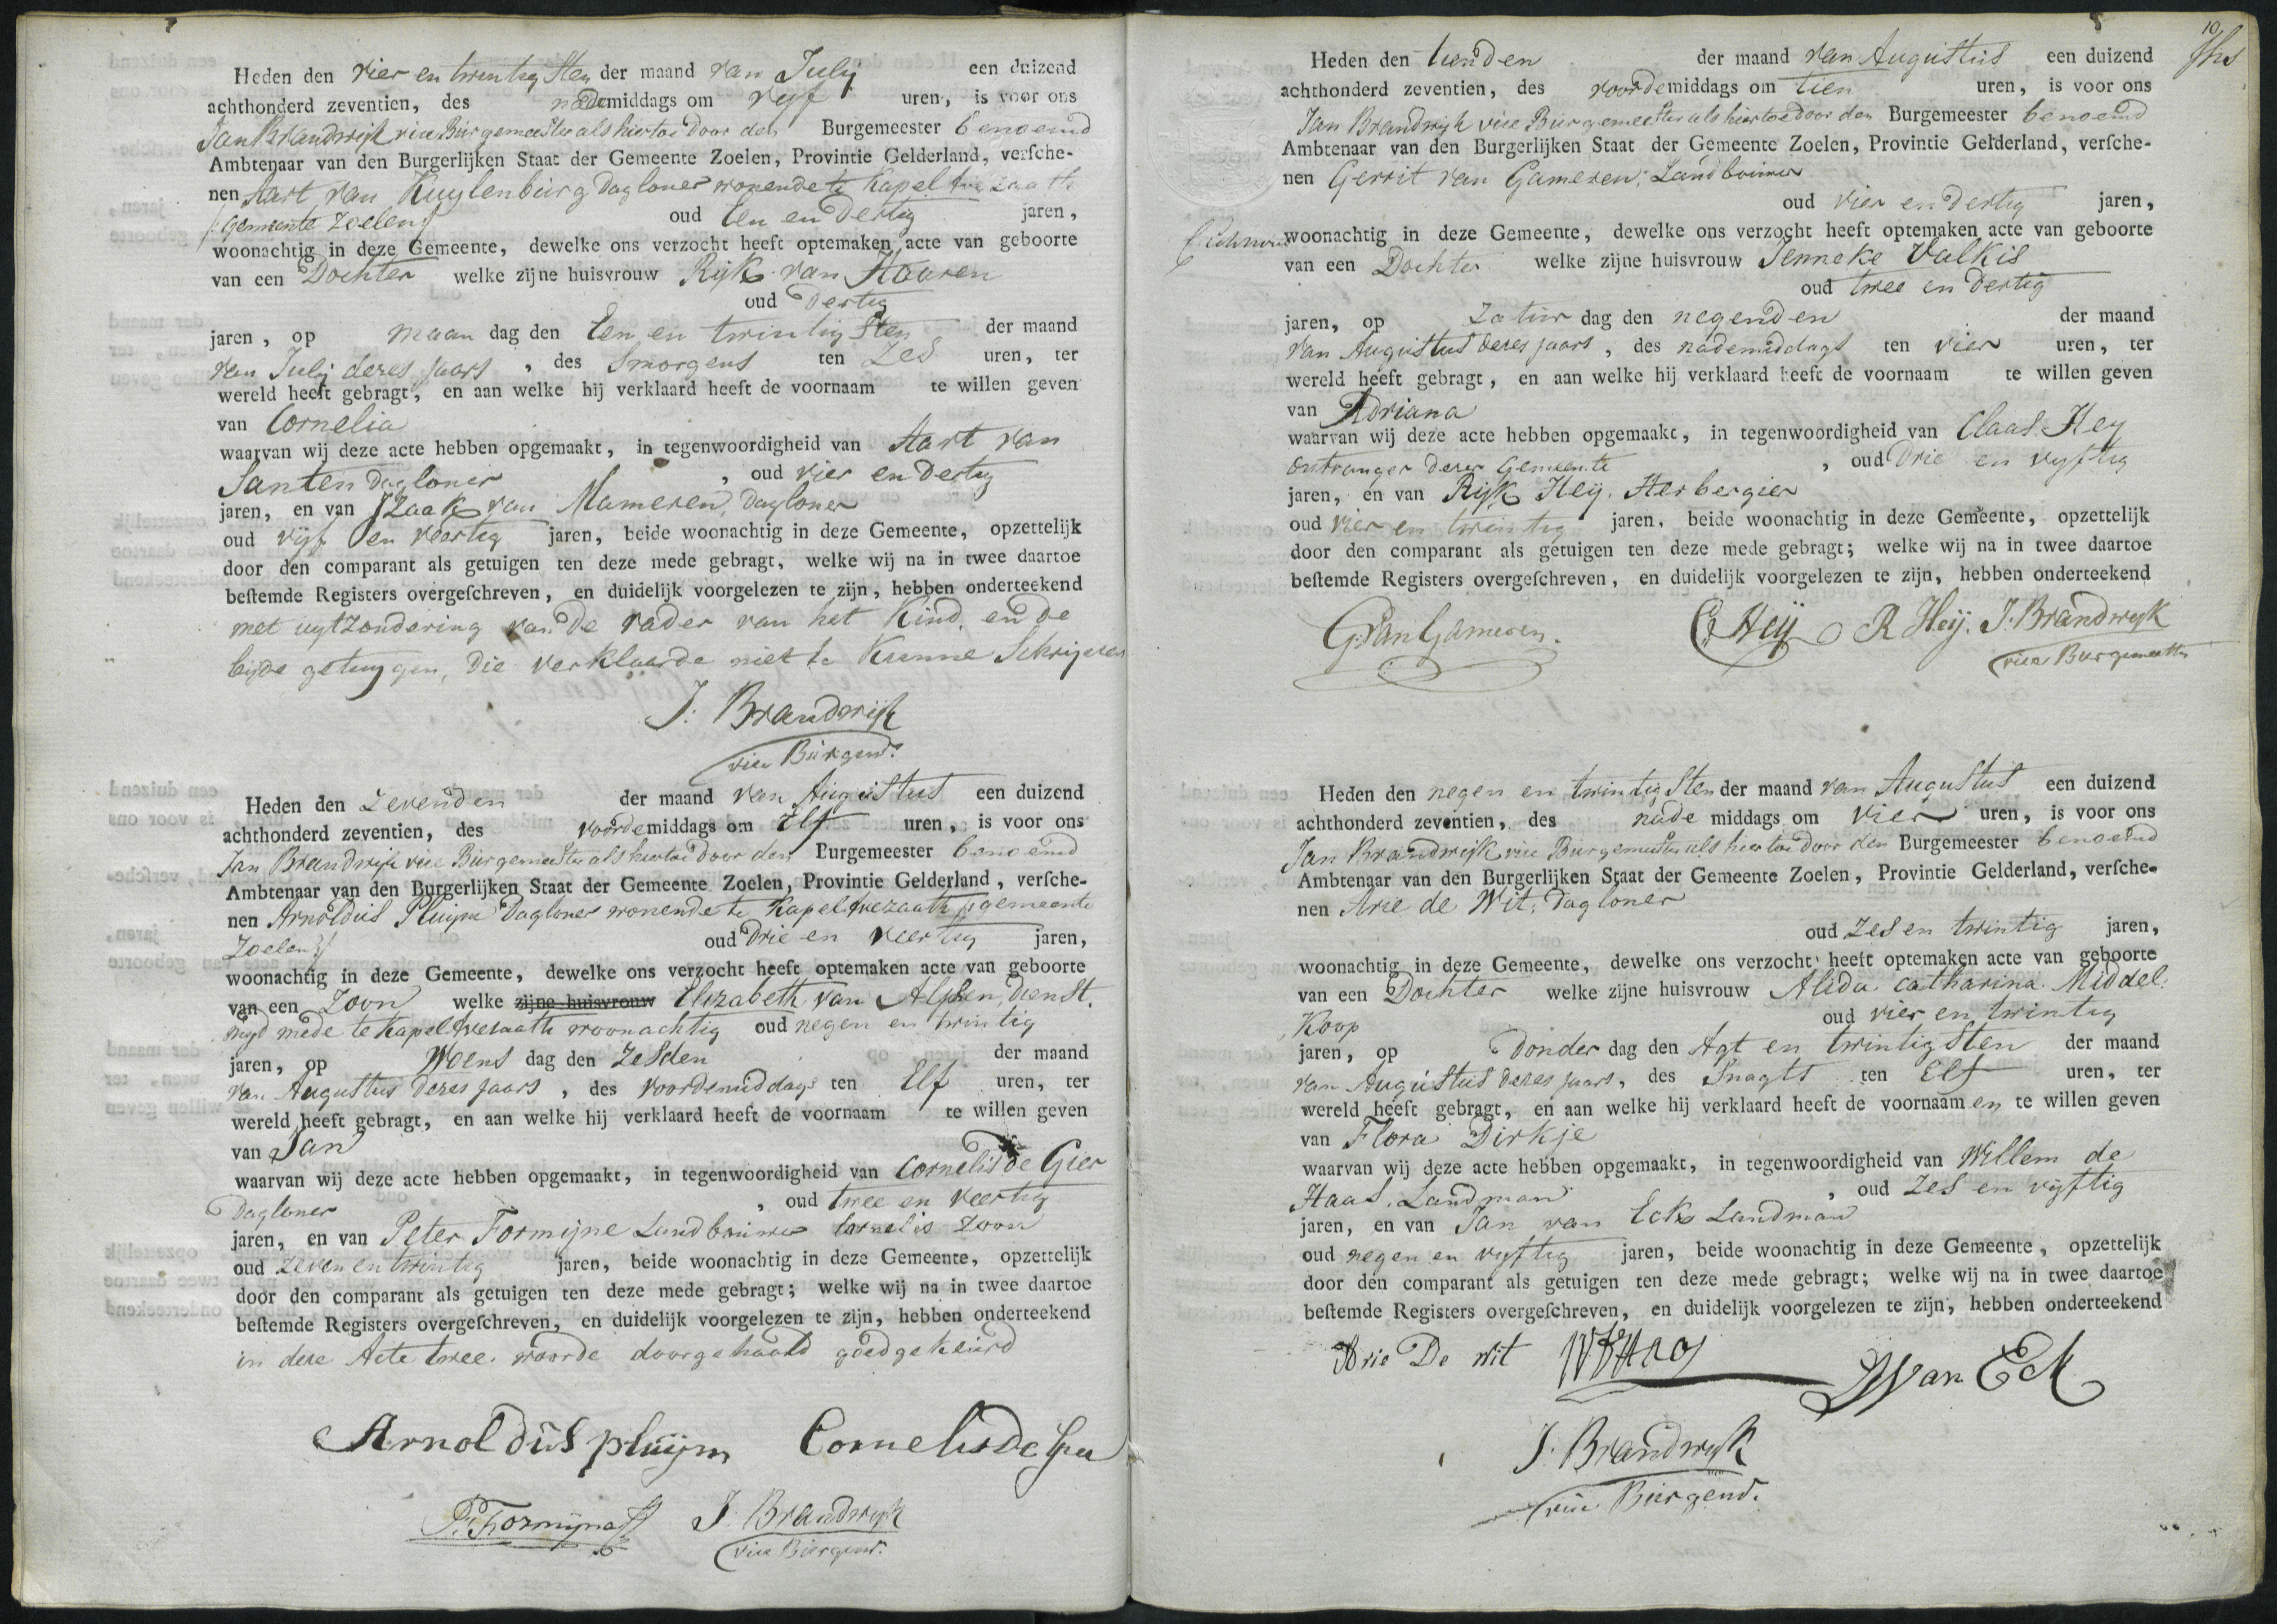 Heden den vier en twintig sten der maand van July een duizend
achthonderd zeventien, des nademiddags om vyf uren, is voor ons
Jan Brandwijk vice Burgemeester als hiertoe door den Burgemeester benoemd
Ambtenaar van den Burgerlijken Staat der Gemeente Zoelen, Provintie Gelderland, verfche-
nen Aart van Kuylenburg Dagloner wonende te Kapel
gemeente Zoelen oud Een en dertig jaren,
woonachtig in deze Gemeente, dewelke ons verzocht heeft optemaken acte van geboorte
van een Dochter welke zijne huisvrouw Rijk van Haaren
oud Dertig
jaren, op maan dag den Een en twintig sten der maand
van July dezes jaars, des Smorgens ten Zes uren, ter
wereld heeft gebragt, en aan welke hij verklaard heeft de voornaam te willen geven
van Cornelia
waarvan wij deze acte hebben opgemaakt, in tegenwoordigheid van Aart van
Santen Dagloner, oud vier en dertig
jaren, en van Izaak van Mameren, Dagloner
oud vijf en veertig jaren, beide woonachtig in deze Gemeente, opzettelijk
door den comparant als getuigen ten deze mede gebragt, welke wij na in twee daartoe
beftemde Registers overgefchreven, en duidelijk voorgelezen te zijn, hebben onderteekend
met uytzondering van de vader van het Kind, en de
beyde getuygen, die verklaarde niet te Kunne Schrijven
J. Brandwijk
vice Burgem.
Heden den Zevenden der maand van Augustus een duizend
achthonderd zeventien, des voordemiddags om Elf uren, is voor ons
Jan Brandwijk vice Burgemeester als hiertoe door den Burgemeester benoemd
Ambtenaar van den Burgerlijken Staat der Gemeente Zoelen, Provintie Gelderland, verfche-
nen Arnoldus Pluym Dagloner wonende te Kapelavezaath gemeente
Zoelen oud Drie en veertig jaren,
woonachtig in deze Gemeente, dewelke ons verzocht heeft optemaken acte van geboorte
van een Zoon welke zijne huisvrouw Elizabeth van Alphen, Dienst.
mijd mede te Kapelavezaath woonachtig oud negen en twintig
jaren, op Woens dag den Zesden der maand
van Augustus dezes jaars, des voordemiddags ten Elf uren, ter
wereld heeft gebragt, en aan welke hij verklaard heeft de voornaam te willen geven
van Jan
waarvan wij deze acte hebben opgemaakt, in tegenwoordigheid van Cornelis de Gier
Dagloner, oud twee en veertig
jaren, en van Peter Formijne Landbouwer Cornelis Zoon
oud zeven en twintig jaren, beide woonachtig in deze Gemeente, opzettelijk
door den comparant als getuigen ten deze mede gebragt; welke wij na in twee daartoe
beftemde Registers overgefchreven, en duidelijk voorgelezen te zijn, hebben onderteekend
in deze Acte twee woorde doorgehaald goedgekeurd
Arnoldus pluijm Cornelis de Gier
P. Formijne J. Brandwijk
vice Burgem.
10
Heden den tienden der maand van Augustus een duizend
achthonderd zeventien, des voordemiddags om tien uren, is voor ons
Jan Brandwijk vice Burgemeester als hiertoe door den Burgemeester benoemd
Ambtenaar van den Burgerlijken Staat der Gemeente Zoelen, Provintie Gelderland, verfche-
nen Gerrit van Gameren, Landbouwer
oud vier en dertig jaren,
woonachtig in deze Gemeente, dewelke ons verzocht heeft optemaken acte van geboorte
van een Dochter welke zijne huisvrouw Jenneke Valkis
oud twee en dertig
jaren, op Zatur dag den negenden der maand
van Augustus dezes jaars, des nademiddags ten vier uren, ter
wereld heeft gebragt, en aan welke hij verklaard heeft de voornaam te willen geven
van Adriana
waarvan wij deze acte hebben opgemaakt, in tegenwoordigheid van Claas Hey
Ontvanger dezer Gemeente, oud Drie en vyftig
jaren, en van Rijk Heij, Herbergier
oud vier en twintig jaren, beide woonachtig in deze Gemeente, opzettelijk
door den comparant als getuigen ten deze mede gebragt; welke wij na in twee daartoe
beftemde Registers overgefchreven, en duidelijk voorgelezen te zijn, hebben onderteekend
G. van Gameren. C Heij R Heij. J. Brandwyk
vice Burgemeester
Heden den negen en twintig sten der maand van Augustus een duizend
achthonderd zeventien, des nade middags om vier uren, is voor ons
Jan Brandwijk vice Burgemeester als hiertoe door den Burgemeester benoemd
Ambtenaar van den Burgerlijken Staat der Gemeente Zoelen, Provintie Gelderland, verfche-
nen Arie de Wit, Dagloner
oud Zes en twintig jaren,
woonachtig in deze Gemeente, dewelke ons verzocht heeft optemaken acte van geboorte
van een Dochter welke zijne huisvrouw Alida Catharina Middel-
Koop oud vier en twintig
jaren, op Donder dag den Agt en twintigsten der maand
van Augustus dezes jaars, des Snagts ten Elf uren, ter
wereld heeft gebragt, en aan welke hij verklaard heeft de voornaam en te willen geven
van Flora Dirkje
waarvan wij deze acte hebben opgemaakt, in tegenwoordigheid van Willem de
Haas, Landman, oud Zes en vijftig
jaren, en van Jan van Eck Landman
oud negen en vyftig jaren, beide woonachtig in deze Gemeente, opzettelijk
door den comparant als getuigen ten deze mede gebragt; welke wij na in twee daartoe
beftemde Registers overgefchreven, en duidelijk voorgelezen te zijn, hebben onderteekend
Arie De Wit J van Eck
J. Brandwyk
vice Burgem.